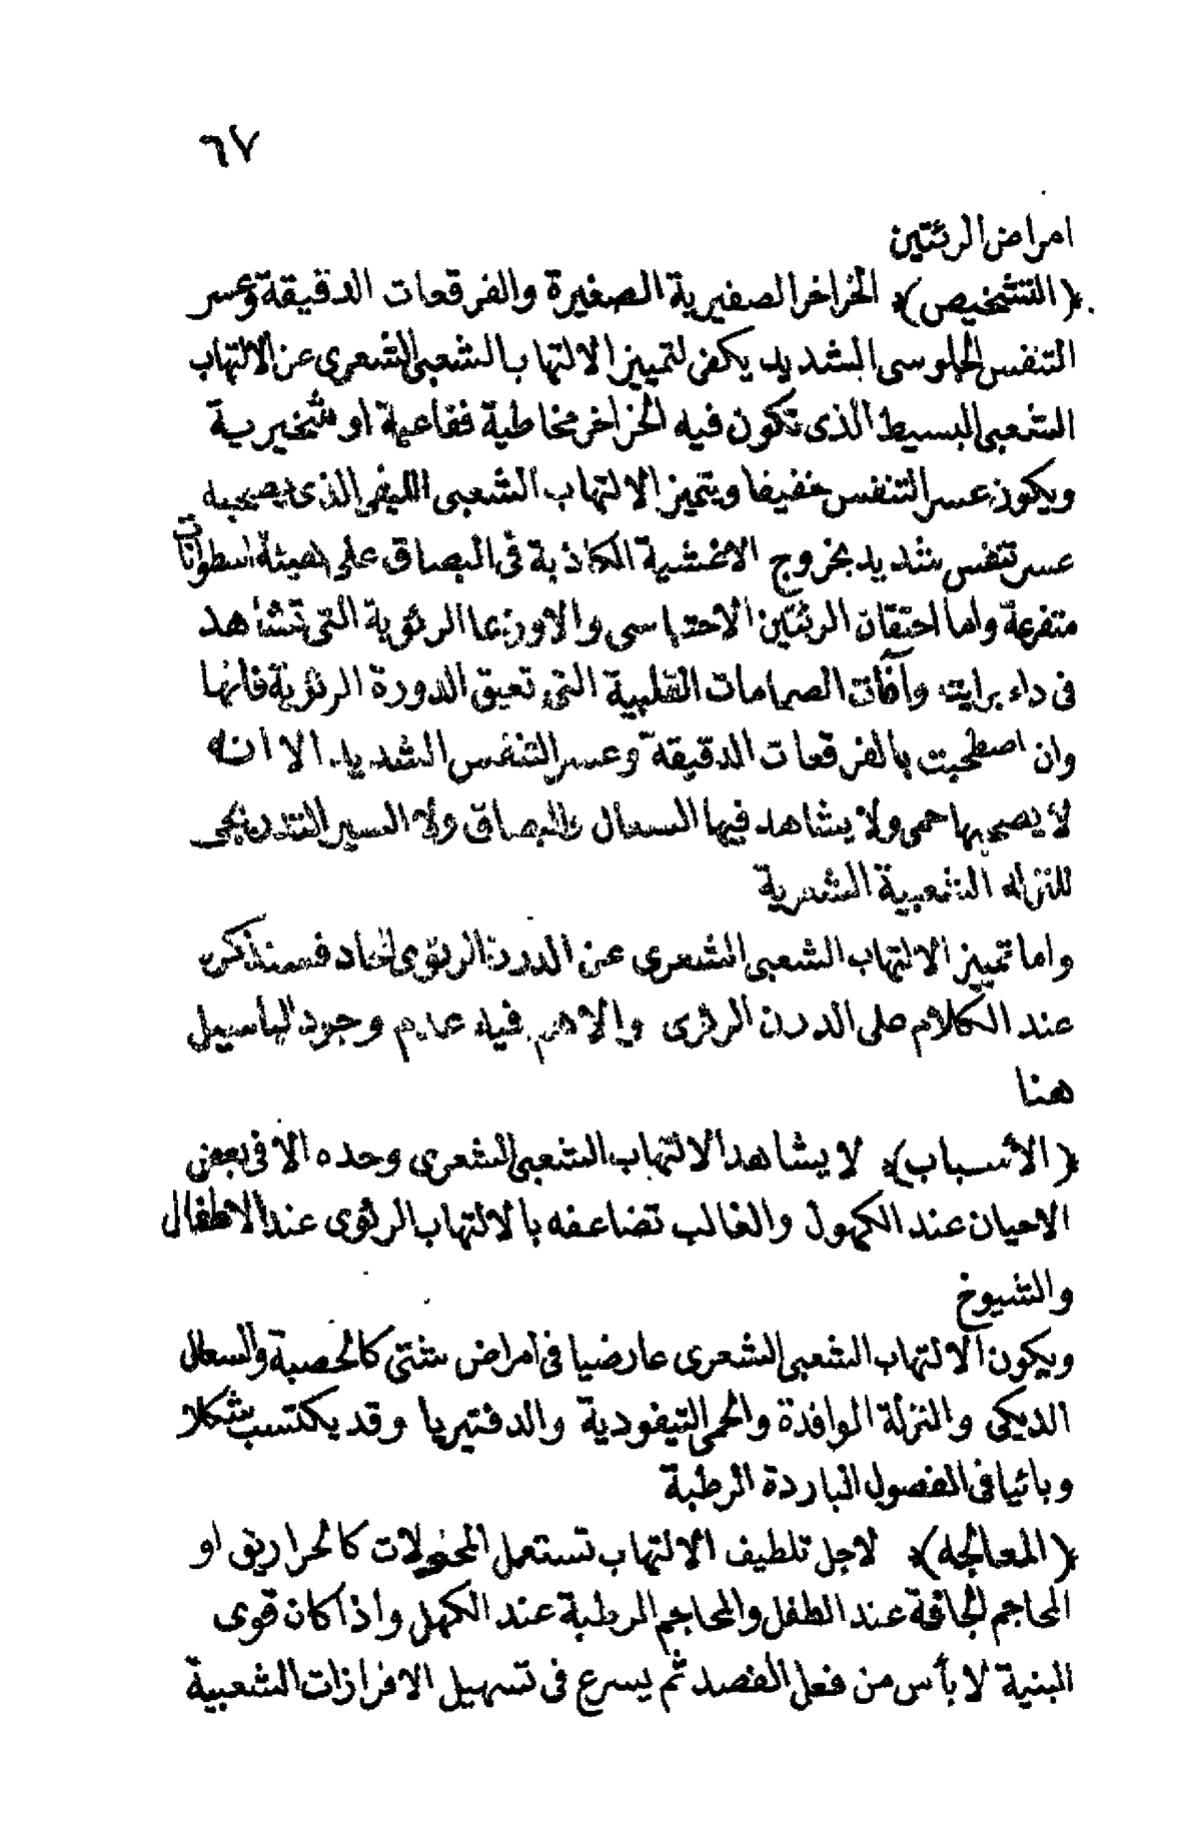 ٦٧
امراض الرئتين
﴿التشخيص﴾ الخراخر الصفيرية الصغيرة والفرقعات الدقيقة وعسر
التنفس الجلوسى الشديد يكفى لتمييز الالتهاب الشعبى الشعرى عن الالتهاب
الشعبى البسيط الذى تكون فيه الخراخر مخاطية فقاعية او شخيرية
ويكون عسر التنفس خفيفا ويتميز الالتهاب الشعبى الليفى الذى يصحبه
عسر تنفس شديد بخروج الاغشية الكاذبة فى البصاق على هيئة اسطوانات
متفرعة واما احتقان الرئتين الاحتباسى والاوزيما الرئوية التى تشاهد
فى داء برايت وآفات الصمامات القلبية التى تعيق الدورة الرئوية فانها
وان اصطحبت بالفرقعات الدقيقة وعسر التنفس الشديد الا انه
لا يصحبها حمى ولا يشاهد فيها السعال والبصاق ولا السير التدريجى
للنزله الشعبية الشعرية
واما تمييز الالتهاب الشعبى الشعرى عن الدرن الرئوى الحاد فسنذكره
عند الكلام على الدرن الرئوى والاهم فيه عدم وجود الباسيل
هنا
﴿الأسباب﴾ لا يشاهد الالتهاب الشعبى الشعرى وحده الا فى بعض
الاحيان عند الكهول والغالب تضاعفه بالالتهاب الرئوى عند الاطفال
والشيوخ
ويكون الالتهاب الشعبى الشعرى عارضيا فى امراض شتى كالحصبة والسعال
الديكى والنزلة الوافدة والحمى التيفودية والدفتيريا وقد يكتسب شكلا
وبائيا فى الفصول الباردة الرطبة
﴿المعالجه﴾ لاجل تلطيف الالتهاب تستعمل المحولات كالحراريق او
المحاجم الجافة عند الطفل والمحاجم الرطبة عند الكهل واذا كان قوى
البنية لا بأس من فعل الفصد ثم يسرع فى تسهيل الافرازات الشعبية